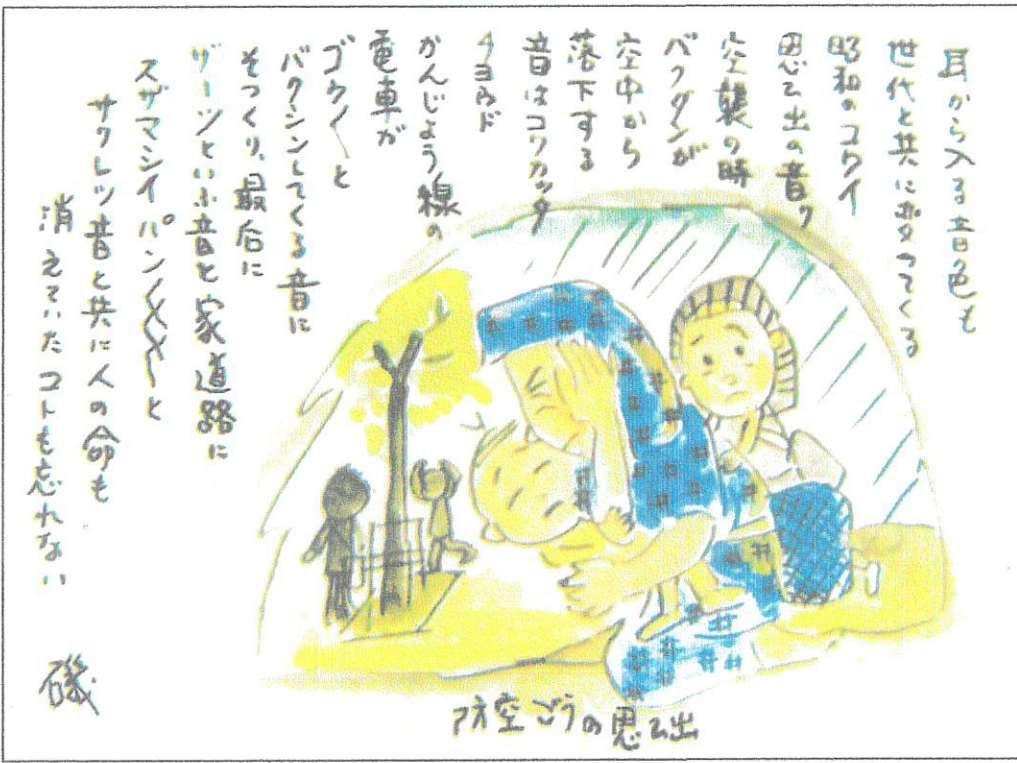 耳から入る音色も
世代と共に変ってくる
昭和のコワイ
思い出の音り
空襲の時
バクダンが
空中から
落下する
音はコワカッタ
チョウド
かんじょう線の
電車が
ゴウ〳〵と
バクシンしてくる音に
そっくり、最后に
ザーッといふ音と家道路に
スザマシイ パン〳〵〳〵〳〵と
サクレツ音と共に人の命も
消えていたコトも忘れない
磯
防空ごうの思い出